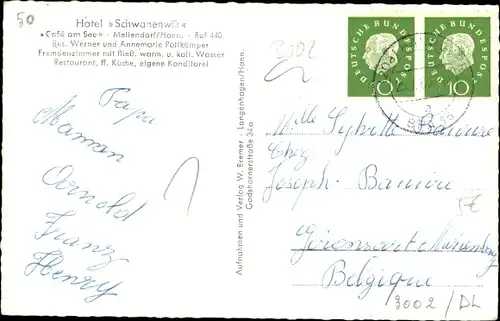 50
Hotel »Schwanenwik«
»Café am See« - Mellendorf/Hann. - Ruf 440
Bes. Werner und Annemarie Pottkämper
Fremdenzimmer mit fließ. warm. u. kalt. Wasser
Restaurant, fl. Küche, eigene Konditorei
Papa
Maman
Arnold
Franz
Henry
Aufnahmen und Verlag W. Eremer - Langenhagen/Hann.
Godshornerstraße 34a
3002
DEUTSCHE BUNDESPOST
10
DEUTSCHE BUNDESPOST
10
Mlle Sybille
Chez
Joseph
5€
Belgique
3002 / DL